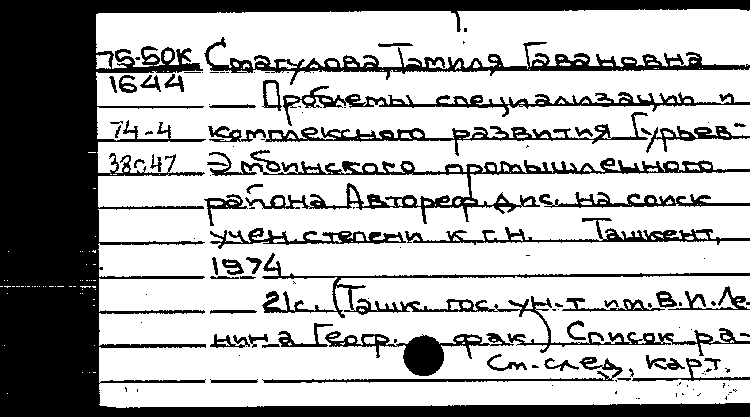 1.
75-50к Смагулова, Тамиля Гавановна
1644 Проблемы специализации и
74-4 комплексного развития Гурьев-
38047 Эмбинского промышленного
района Автореф. дис. на соиск
учен. степени к.г.н. Ташкент,
1974.
21с. (Ташк. гос. ун-т им. В.И. Ле-
нина Геогр. фак.) Список ра-
См. след. карт.